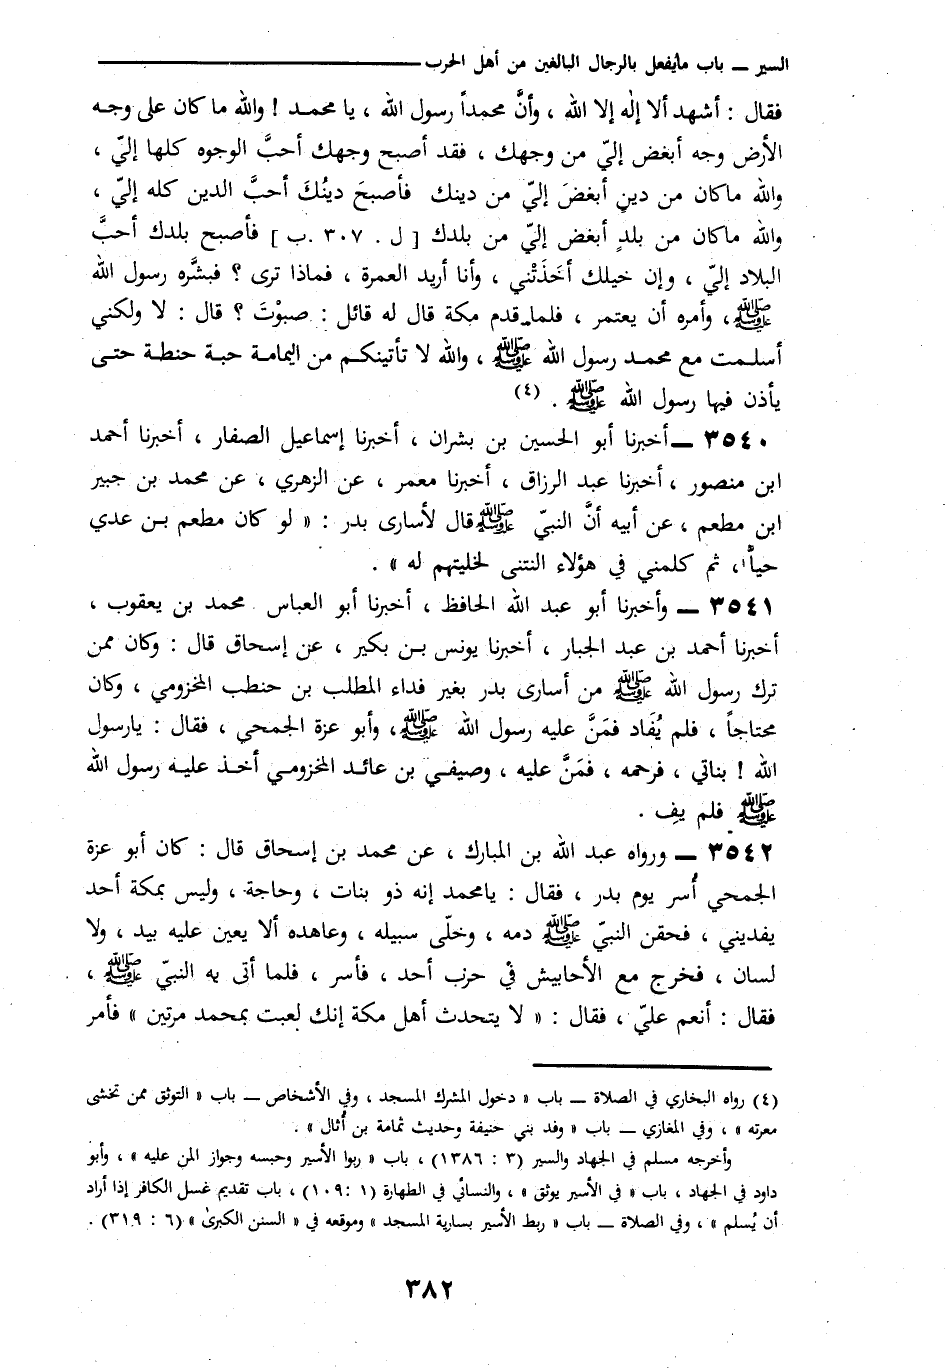 السير ــ باب مايفعل بالرجال البالغين من أهل الحرب
فقال : أشهد ألا إله إلا الله ، وأنَّ محمداً رسول الله ، يا محمد ! والله ما كان على وجه
الأرض وجه أبغض إليّ من وجهك ، فقد أصبح وجهك أحبَّ الوجوه كلها إليّ ،
والله ماكان من دينٍ أبغضَ إليّ من دينك فأصبحَ دينُكَ أحبَّ الدين كله إليّ ،
والله ماكان من بلدٍ أبغض إليّ من بلدك [ ل . ٣٠٧ .ب ] فأصبح بلدك أحبَّ
البلاد إليّ ، وإن خيلك أخَذَتْني ، وأنا أريد العمرة ، فماذا ترى ؟ فبشَّره رسول الله
ﷺ ، وأمره أن يعتمر ، فلما قدم مكة قال له قائل : صبوْتَ ؟ قال : لا ولكني
أسلمت مع محمد رسول الله ﷺ ، والله لا تأتينكم من اليمامة حبة حنطة حتى
يأذن فيها رسول الله ﷺ . (٤)
٣٥٤٠ ــ أخبرنا أبو الحسين بن بشران ، أخبرنا إسماعيل الصفار ، أخبرنا أحمد
ابن منصور ، أخبرنا عبد الرزاق ، أخبرنا معمر ، عن الزهري ، عن محمد بن جبير
ابن مطعم ، عن أبيه أنَّ النبيّ ﷺ قال لأسارى بدر : « لو كان مطعم بن عدي
حياً ، ثم كلمني في هؤلاء النتنى لخليتهم له » .
٣٥٤١ ــ وأخبرنا أبو عبد الله الحافظ ، أخبرنا أبو العباس محمد بن يعقوب ،
أخبرنا أحمد بن عبد الجبار ، أخبرنا يونس بن بكير ، عن إسحاق قال : وكان ممن
ترك رسول الله ﷺ من أسارى بدر بغير فداء المطلب بن حنطب المخزومي ، وكان
محتاجاً ، فلم يُفَاد فمَنَّ عليه رسول الله ﷺ ، وأبو عزة الجمحي ، فقال : يارسول
الله ! بناتي ، فرحمه ، فمَنَّ عليه ، وصيفي بن عائد المخزومي أخذ عليه رسول الله
ﷺ فلم يفِ .
٣٥٤٢ ــ ورواه عبد الله بن المبارك ، عن محمد بن إسحاق قال : كان أبو عزة
الجمحي أُسر يوم بدر ، فقال : يامحمد إنه ذو بنات ، وحاجة ، وليس بمكة أحد
يفديني ، فحقن النبيّ ﷺ دمه ، وخلّى سبيله ، وعاهده ألا يعين عليه بيد ، ولا
لسان ، فخرج مع الأحابيش في حرب أحد ، فأسر ، فلما أتى به النبيّ ﷺ ،
فقال : أنعم عليّ ، فقال : « لا يتحدث أهل مكة إنك لعبت بمحمد مرتين » فأمر
(٤) رواه البخاري في الصلاة ــ باب « دخول المشرك المسجد ، وفي الأشخاص ــ باب « التوثق ممن تخشى
معرته » ، وفي المغازي ــ باب « وفد بني حنيفة وحديث ثمامة بن أُثال » .
وأخرجه مسلم في الجهاد والسير (٣ : ١٣٨٦) ، باب « ربوا الأسير وحبسه وجواز المن عليه » ، وأبو
داود في الجهاد ، باب « في الأسير يوثق » ، والنسائي في الطهارة (١ :١٠٩) ، باب تقديم غسل الكافر إذا أراد
أن يُسلم » ، وفي الصلاة ــ باب « ربط الأسير بسارية المسجد » وموقعه في « السنن الكبرىٰ » (٦ : ٣١٩) .
٣٨٢